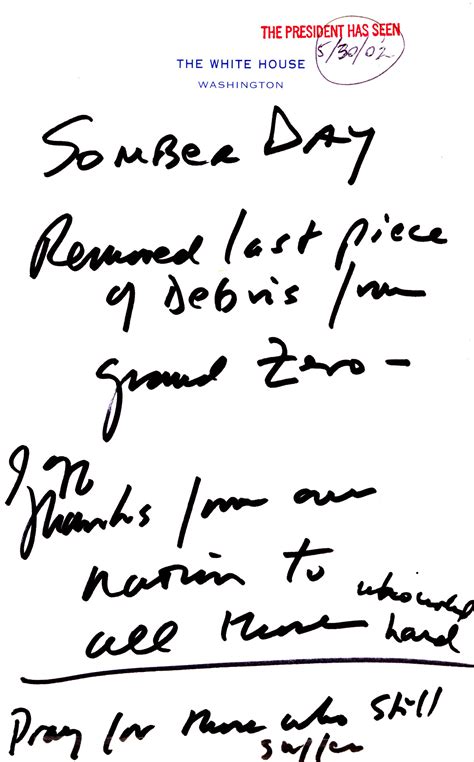 THE PRESIDENT HAS SEEN
5/30/02
THE WHITE HOUSE
WASHINGTON
SOMBER DAY
Removed last piece
of Debris from
ground zero -
Thanks from our
nation to
all those who worked
hard
Pray for those who still
suffer